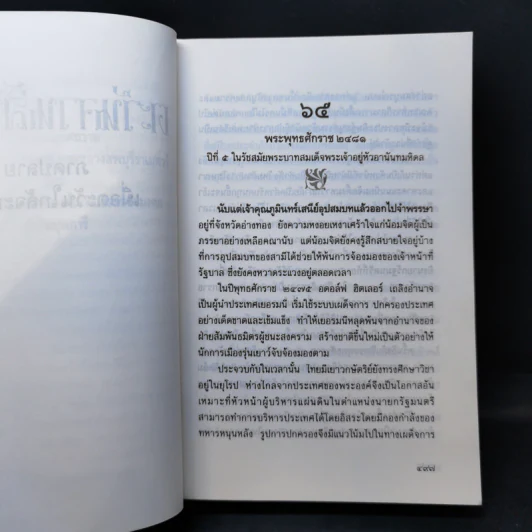 ๖๕
พระพุทธศักราช ๒๔๘๑
ปีที่ ๕ ในรัชสมัยพระบาทสมเด็จพระเจ้าอยู่หัวอานันทมหิดล
นับแต่เจ้าคุณภูมินทร์เสนีย์อุปสมบทแล้วออกไปจำพรรษา
อยู่ที่จังหวัดอ่างทอง ยังความหงอยเหงาเศร้าใจแก่น้อมจิตผู้เป็น
ภรรยาอย่างเหลือคณานับ แต่น้อมจิตยังคงรู้สึกสบายใจอยู่บ้าง
ที่การอุปสมบทของสามีได้ช่วยให้พ้นการจ้องมองของเจ้าหน้าที่
รัฐบาล ซึ่งยังคงหวาดระแวงอยู่ตลอดเวลา
ในปีพุทธศักราช ๒๔๗๕ อดอล์ฟ ฮิตเลอร์ เถลิงอำนาจ
เป็นผู้นำประเทศเยอรมนี เริ่มใช้ระบบเผด็จการ ปกครองประเทศ
อย่างเด็ดขาดและเข้มแข็ง ทำให้เยอรมนีหลุดพ้นจากอำนาจของ
ฝ่ายสัมพันธมิตรผู้ชนะสงคราม สร้างชาติขึ้นใหม่เป็นตัวอย่างให้
นักการเมืองรุ่นเยาว์จับจ้องมองตาม
ประจวบกับในเวลานั้น ไทยมีเยาวกษัตริย์ยังทรงศึกษาวิชา
อยู่ในยุโรป ห่างไกลจากประเทศของพระองค์จึงเป็นโอกาสอัน
เหมาะที่หัวหน้าผู้บริหารแผ่นดินในตำแหน่งนายกรัฐมนตรี
สามารถทำการบริหารประเทศได้โดยอิสระโดยมีกองกำลังของ
ทหารหนุนหลัง รูปการปกครองจึงมีแนวโน้มไปในทางเผด็จการ
๔๙๗